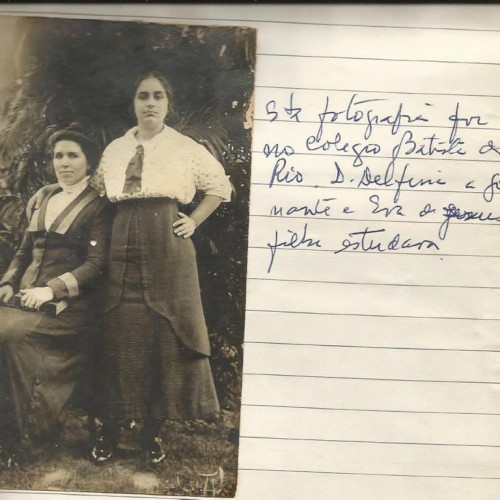 Sta fotografia foi
no Colegio Batista do
Rio. D. Delfina a
nante e Eva de
filha estudara